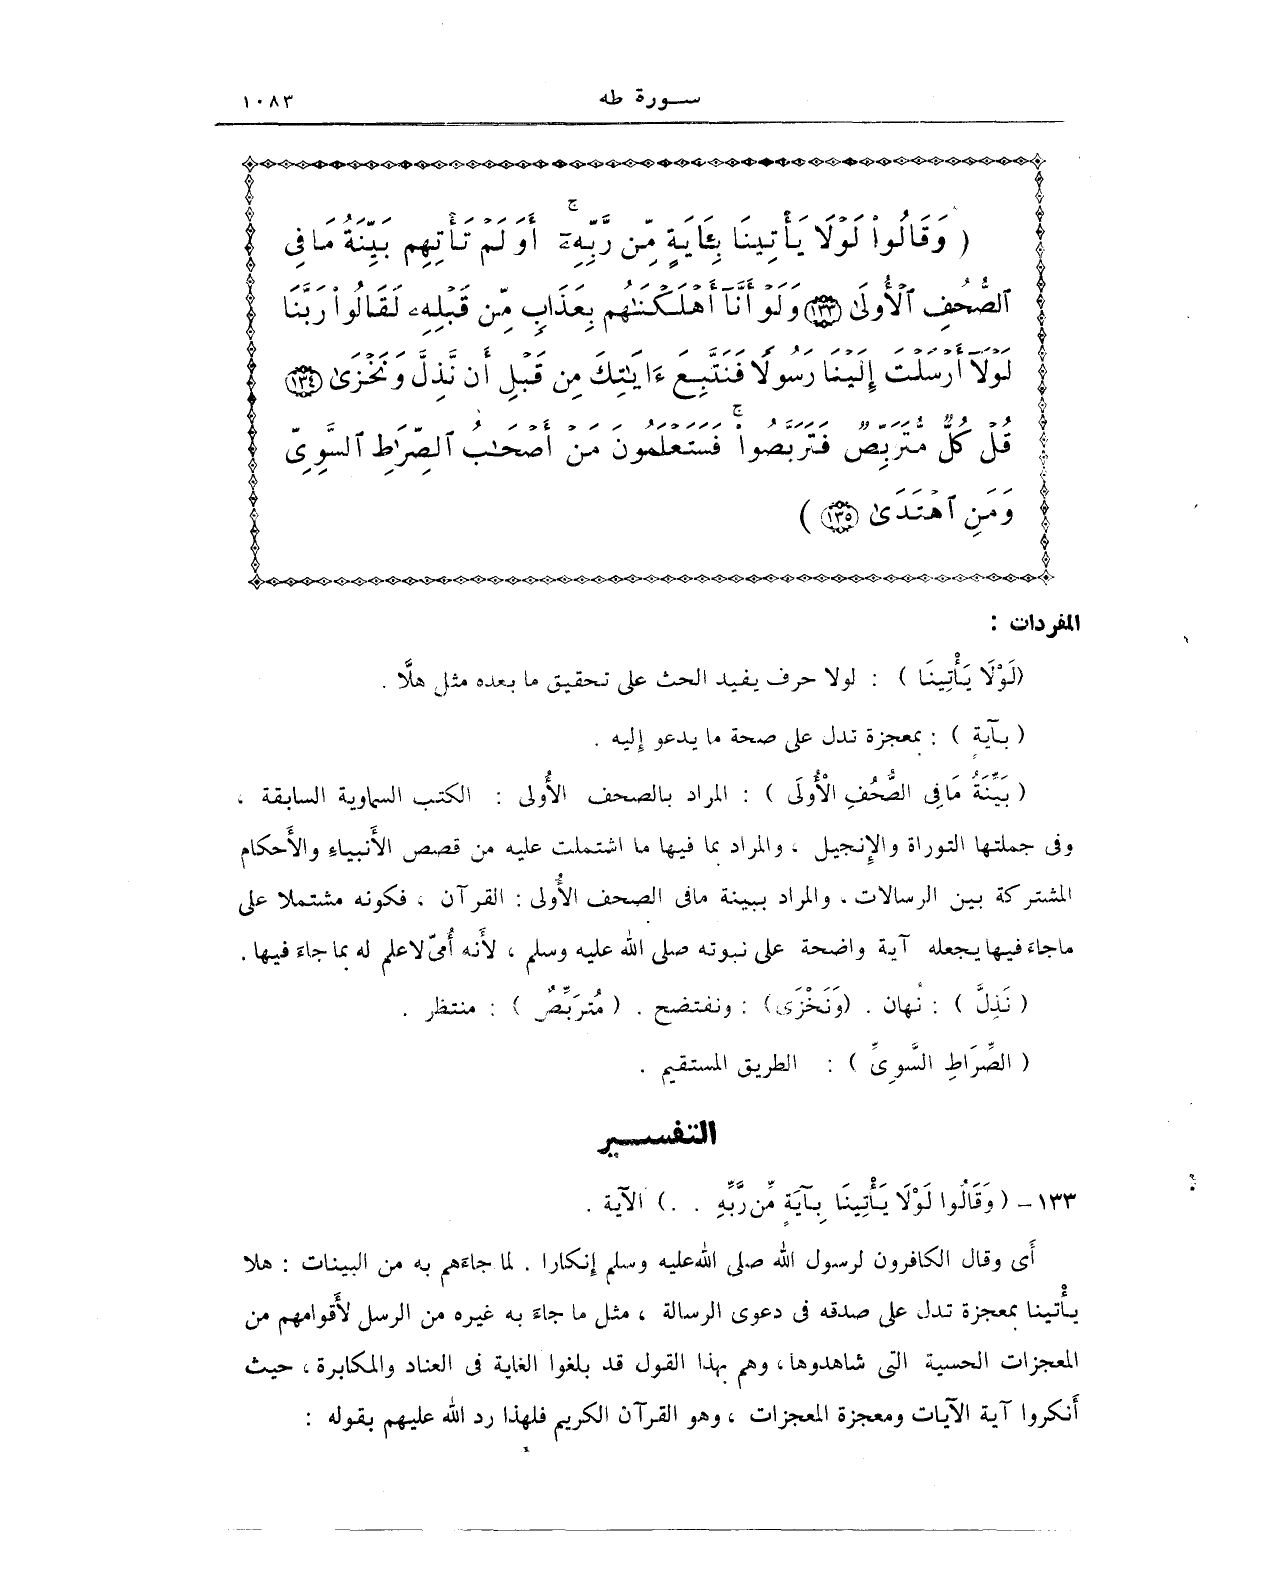 سورة طه ١٠٨٣
( وَقَالُوا۟ لَوْلَا يَأْتِينَا بِـَٔايَةٍ مِّن رَّبِّهِۦٓ ۚ أَوَلَمْ تَأْتِهِم بَيِّنَةُ مَا فِى
ٱلصُّحُفِ ٱلْأُولَىٰ ١٣٣ وَلَوْ أَنَّآ أَهْلَكْنَـٰهُم بِعَذَابٍ مِّن قَبْلِهِۦ لَقَالُوا۟ رَبَّنَا
لَوْلَآ أَرْسَلْتَ إِلَيْنَا رَسُولًا فَنَتَّبِعَ ءَايَـٰتِكَ مِن قَبْلِ أَن نَّذِلَّ وَنَخْزَىٰ ١٣٤
قُلْ كُلٌّ مُّتَرَبِّصٌ فَتَرَبَّصُوا۟ ۚ فَسَتَعْلَمُونَ مَنْ أَصْحَـٰبُ ٱلصِّرَٰطِ ٱلسَّوِىِّ
وَمَنِ ٱهْتَدَىٰ ١٣٥ )
المفردات :
(لَوْلَا يَأْتِينَا ) : لولا حرف يفيد الحث على تحقيق ما بعده مثل هلَّا .
( بآيةٍ ) : بمعجزة تدل على صحة ما يدعو إليه .
( بَيِّنَةُ مَا فِى الصُّحُفِ الْأُولَى ) : المراد بالصحف الأُولى : الكتب السماوية السابقة ،
وفى جملتها التوراة والإنجيل ، والمراد بما فيها ما اشتملت عليه من قصص الأَنبياءِ والأَحكام
المشتركة بين الرسالات ، والمراد ببينة مافى الصحف الأُولى : القرآن ، فكونه مشتملا على
ماجاءَ فيها يجعله آية واضحة على نبوته صلى الله عليه وسلم ، لأَنه أُمىّ لاعلم له بما جاءَ فيها .
( نَذِلَّ ) : نُهان . (وَنَخْزَى) : ونفتضح . ( مُتَرَبِّصٌ ) : منتظر .
( الصِّرَاطِ السَّوِىِّ ) : الطريق المستقيم .
التفسير
١٣٣ – ( وَقَالُوا لَوْلَا يَأْتِينَا بِآيَةٍ مِّن رَّبِّهِ . . ) الآية .
أَى وقال الكافرون لرسول الله صلى الله عليه وسلم إنكارا . لما جاءَهم به من البينات : هلا
يأْتينا بمعجزة تدل على صدقه فى دعوى الرسالة ، مثل ما جاءَ به غيره من الرسل لأَقوامهم من
المعجزات الحسية التى شاهدوها ، وهم بهذا القول قد بلغوا الغاية فى العناد والمكابرة ، حيث
أَنكروا آية الآيات ومعجزة المعجزات ، وهو القرآن الكريم فلهذا رد الله عليهم بقوله :